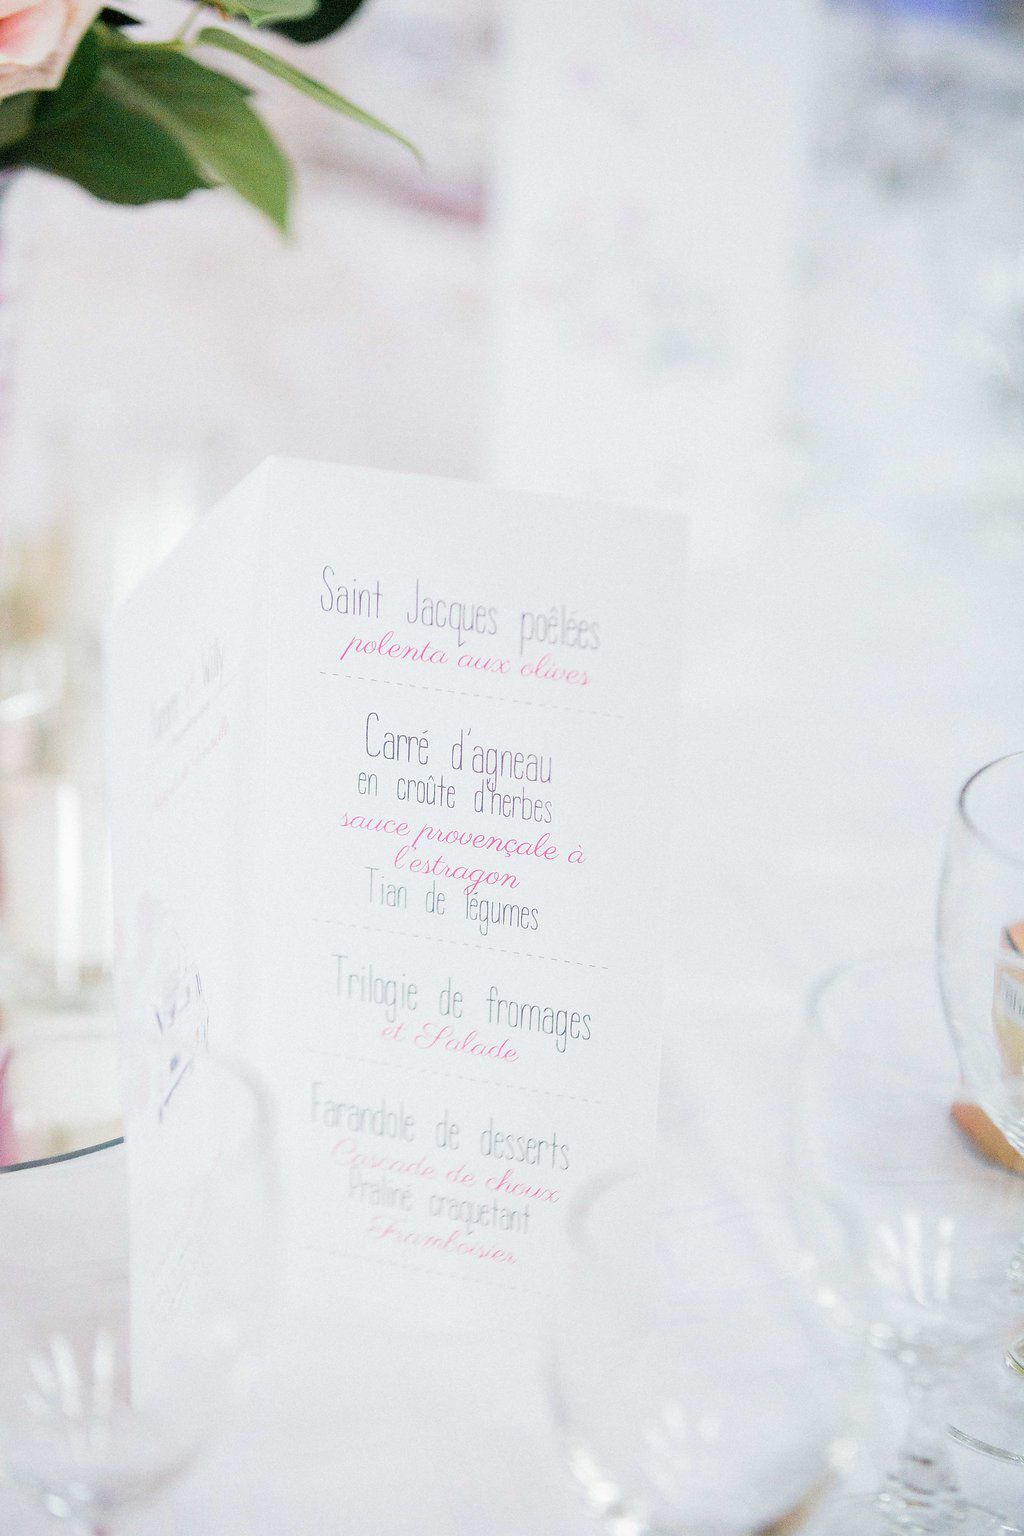 Saint Jacques poêlées
polenta aux olives
Carré d'agneau
en croûte d'herbes
sauce provençale à
l'estragon
Tian de légumes
Trilogie de fromages
et Salade
Farandole de desserts
Cascade de choux
Praliné craquetant
Framboisier